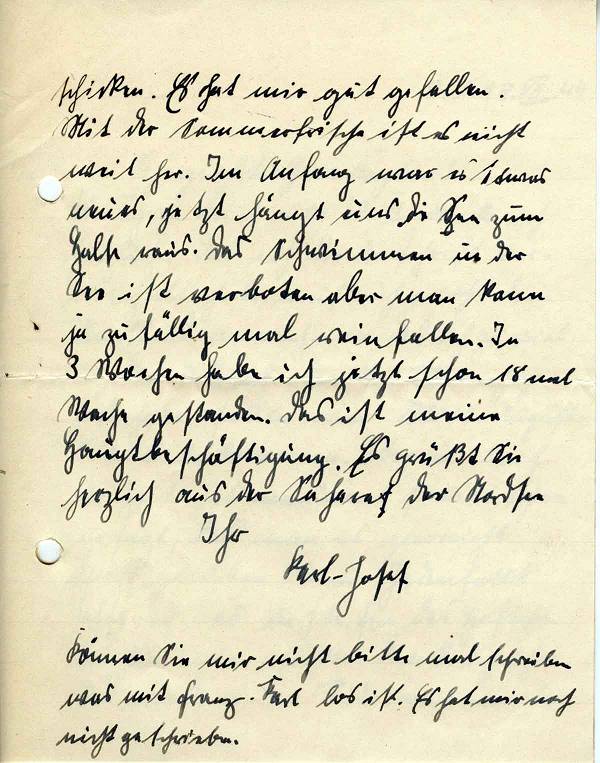 schicken. Es hat mir gut gefallen.
Mit der Sommerfrische ist es nicht
weit her. Im Anfang war es etwas
neues, jetzt hängt uns die See zum
Halse raus. Das Schwimmen in der
See ist verboten aber man kann
ja zufällig mal reinfallen. In
3 Wochen habe ich jetzt schon 18 mal
Wache gestanden. Das ist meine
Hauptbeschäftigung. Es grüßt Sie
herzlich aus der Sahara der Nordsee
Ihr
Karl-Josef
Können Sie mir nicht bitte mal schreiben
was mit Franz-Karl los ist. Es hat mir noch
nicht geschrieben.